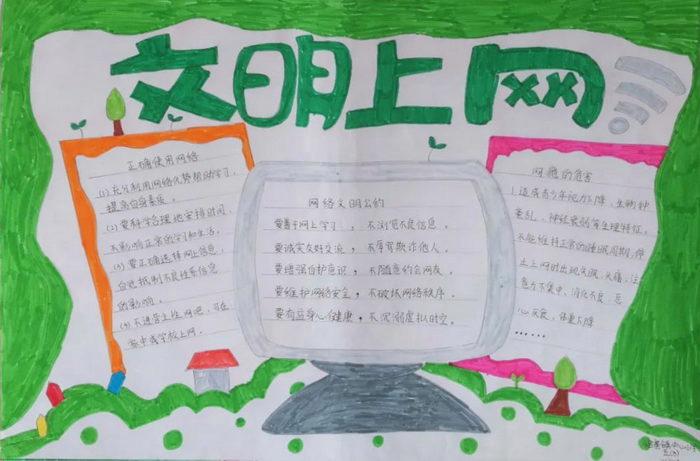 文明上网
正确使用网络
(1) 充分利用网络优势帮助学习,
提高自身素质。
(2) 要科学合理地安排时间,
不影响正常的学习和生活。
(3) 要正确选择网上信息,
自觉抵制不良信息
的影响。
(4) 不进营业性网吧,可在
家中或学校上网。
网络文明公约
要善于网上学习,不浏览不良信息。
要诚实友好交流,不辱骂欺诈他人。
要增强自护意识,不随意约会网友。
要维护网络安全,不破坏网络秩序。
要有益身心健康,不沉溺虚拟时空。
网瘾的危害
1.造成青少年视力下降,生物钟
紊乱,神经衰弱等生理特征。
不能维持正常的睡眠周期,停
止上网时出现失眠,头痛,注
意力不集中,消化不良,恶
心厌食,体重下降
……